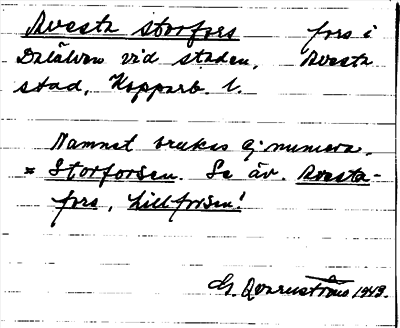 Avesta storfors fors i
Dalälven vid staden, Avesta
stad, Kopparb. l.
Namnet brukas ej numera.
= Storforsen. Se äv. Avesta-
fors, Lillforsen!
G. Qvarnström 1943.